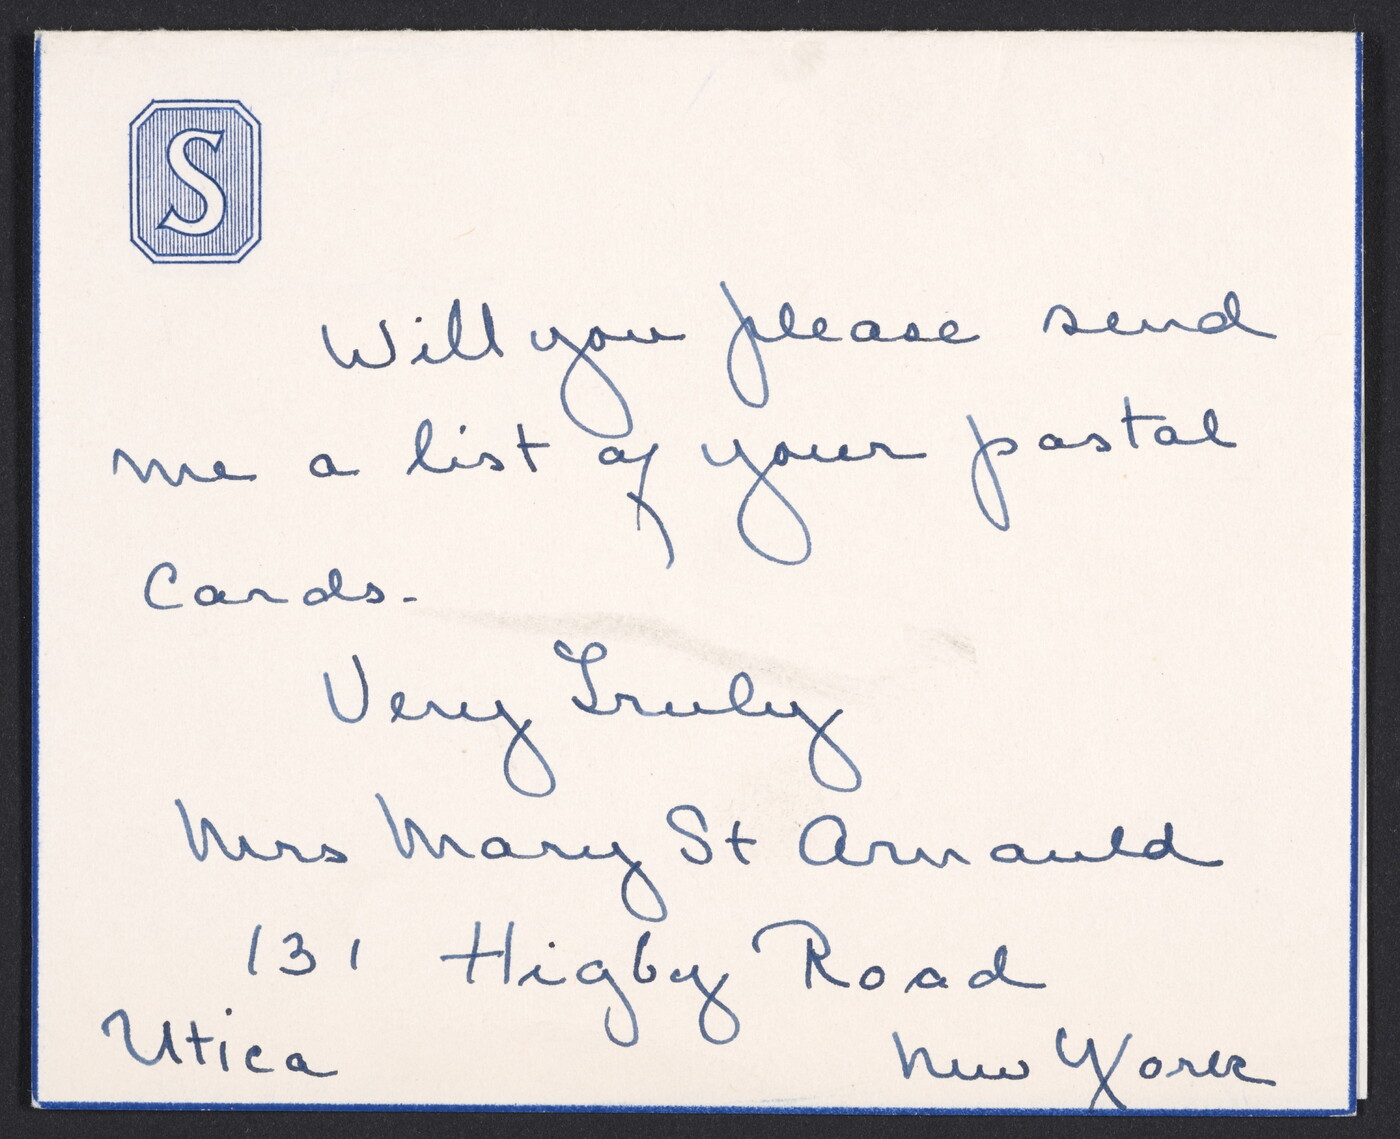 S
Will you please send
me a list of your postal
Cards.
Very Truly
Mrs Mary St Arnauld
131 Higby Road
Utica New York